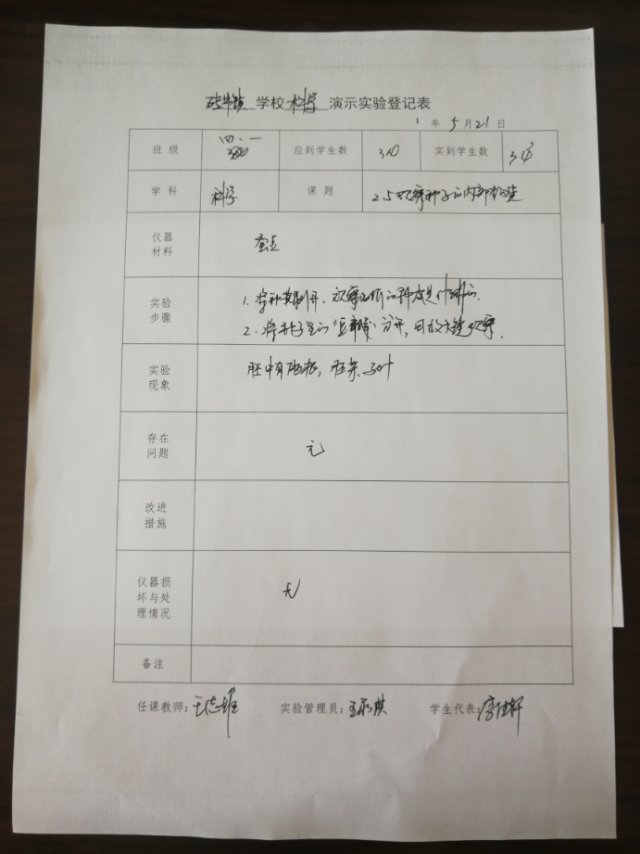 学校 科学 演示实验登记表
年 5 月 21 日
班 级 四.一 应到学生数 30 实到学生数
学 科 科学 课 题 观察种子的内部构造
仪器
材料 蚕豆
实验
步骤
1. 将种 剥开、观察 的种皮是什 的.
2. 将 的“ ” 分开,用放大镜观察.
实验
现象 胚中有胚根, 胚芽 子叶
存在
问题 无
改进
措施
仪器损
坏与处
理情况 无
备注
任课教师: 王志雄 实验管理员: 学生代表: